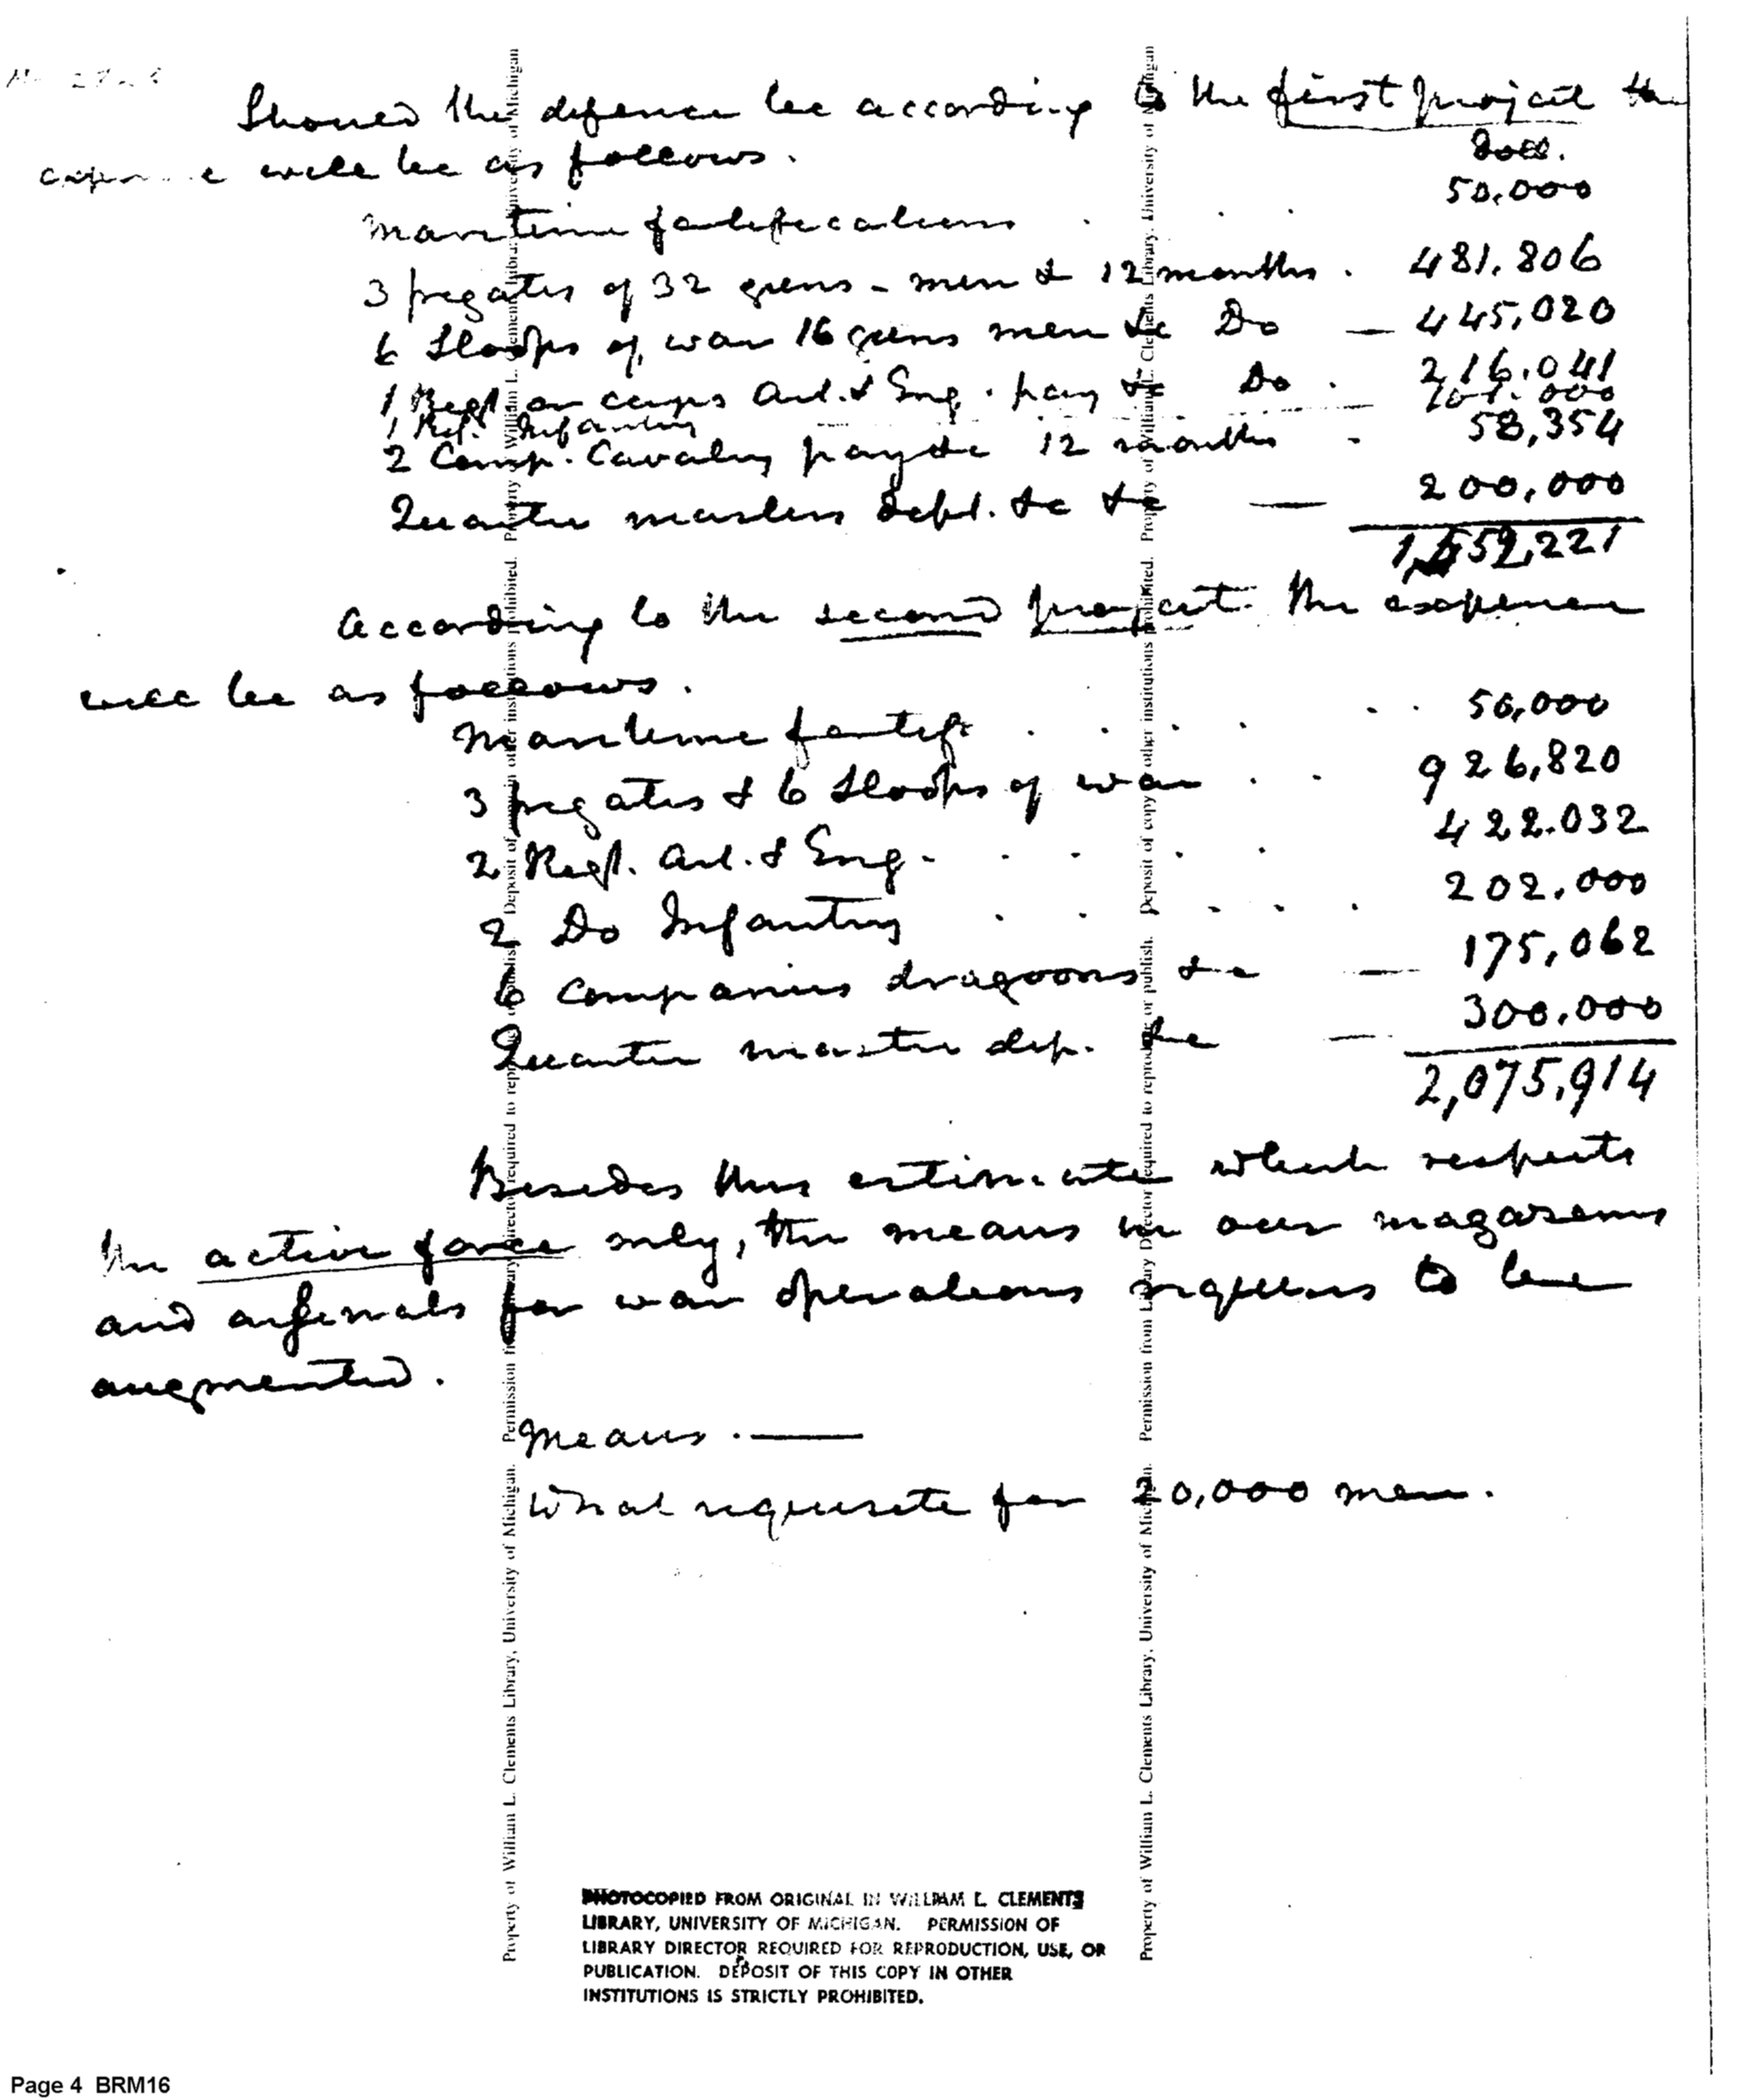 Should the defence be according to the first project the
expence will be as follows.
Doll.
Maritime fortifications . . . 50,000
3 frigates of 32 guns - men & 12 months . 481.806
6 Sloops of war 16 guns men &c Do — 445,020
1 Regt or corps Art. & Eng. pay &c Do . 216.041
1 Regt. Infantry 101.000
2 Comp. Cavalry pay &c 12 months - 58,354
Quarter masters dept. &c &c — 200,000
1,552,221
According to the second project the expence
will be as follows.
Maritime fortifs . . . . . . 50,000
3 frigates & 6 Sloops of war . . 926,820
2 Regt. Art. & Eng. . . . . 422.032
2 Do Infantry . . . . . . 202.000
6 Companies dragoons &c — 175,062
Quarter master dep. &c — 300.000
2,075,914
Besides this estimate which respects
the active force only, the means in our magazines
and arsenals for war operations requires to be
augmented.
Means. —
What requisite for 20,000 men.
Property of William L. Clements Library, University of Michigan. Permission from Library Director required to reproduce or publish. Deposit of copy other institutions prohibited. Property of William L. Clements Library, University of Michigan
Property of William L. Clements Library, University of Michigan. Permission from Library Director required to reproduce or publish. Deposit of copy other institutions prohibited. Property of William L. Clements Library, University of Michigan
PHOTOCOPIED FROM ORIGINAL IN WILLIAM L. CLEMENTS
LIBRARY, UNIVERSITY OF MICHIGAN. PERMISSION OF
LIBRARY DIRECTOR REQUIRED FOR REPRODUCTION, USE, OR
PUBLICATION. DEPOSIT OF THIS COPY IN OTHER
INSTITUTIONS IS STRICTLY PROHIBITED.
Page 4 BRM16